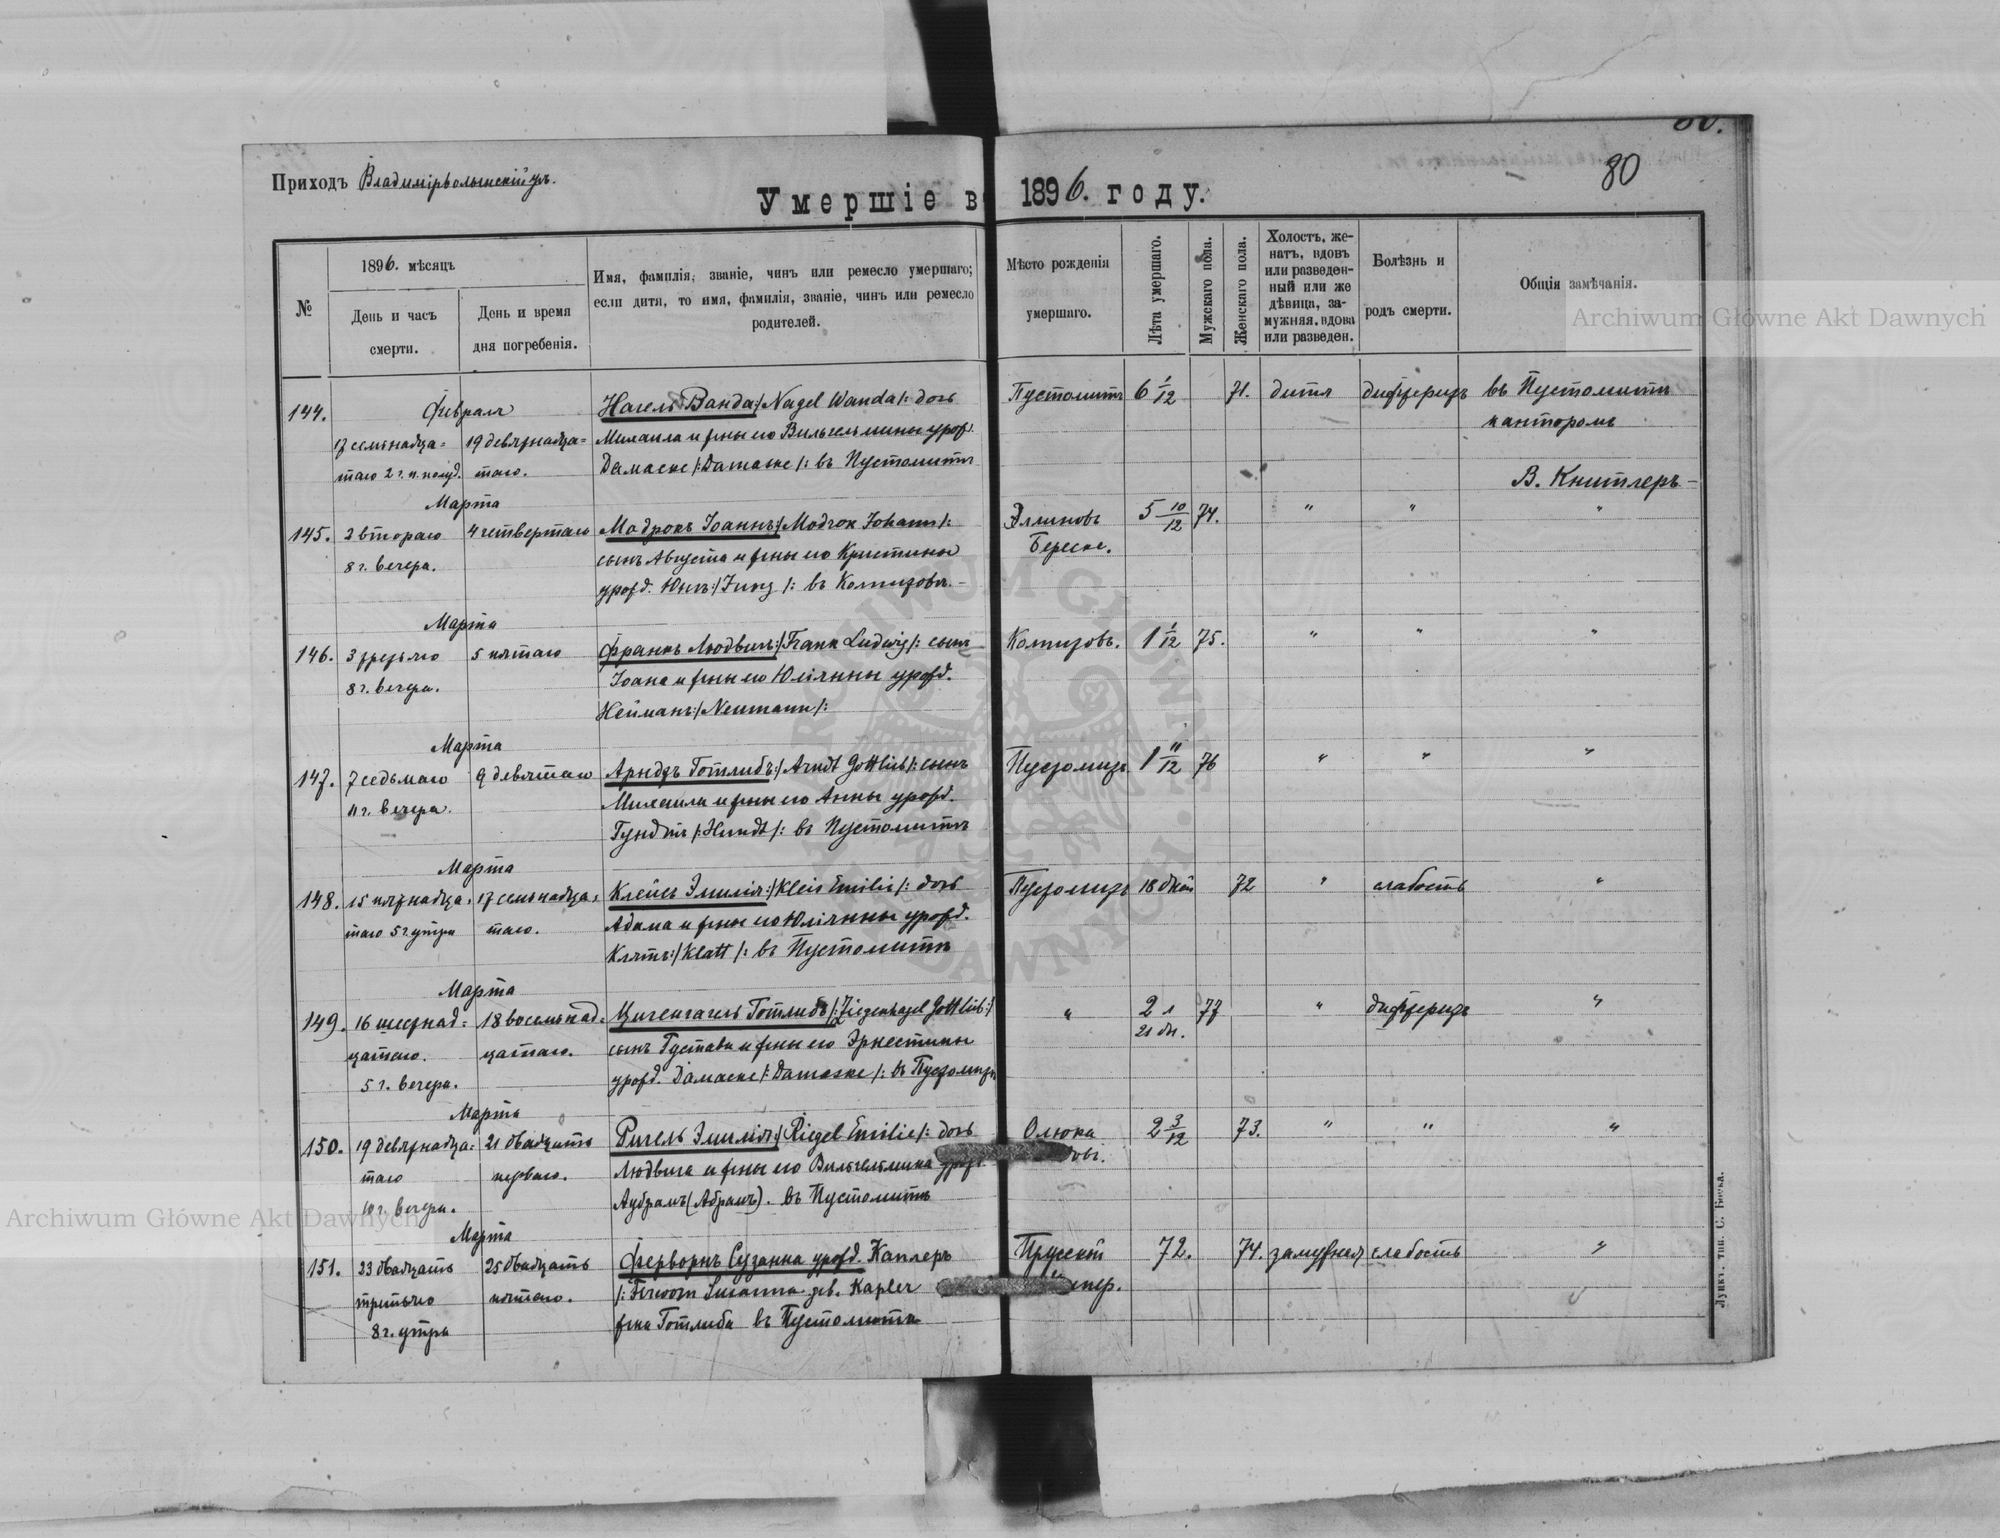 80.
80
Приходъ Владимірволынскій уѣ.
Умершіе въ 1896. году.
№
1896. мѣсяцъ
День и часъ смерти.
День и время дня погребенія.
Имя, фамилія, званіе, чинъ или ремесло умершаго;
если дитя, то имя, фамилія, званіе, чинъ или ремесло
родителей.
Мѣсто рожденія
умершаго.
Лѣта умершаго.
Мужскаго пола.
Женскаго пола.
Холостъ, же-
натъ, вдовъ
или разведен-
ный или же
дѣвица, за-
мужняя, вдова
или разведен.
Болѣзнь и
родъ смерти.
Общія замѣчанія.
144.
Февраля
17 семнадца=
таго 2 г. п. полуд.
19 девятнадца=
таго.
Нагель Ванда /: Nagel Wanda :/ дочь
Михаила и жены его Вильгельмины урожд.
Дамаске /: Damaske :/ въ Пустомитѣ
Пустомитъ
6 1/12
71.
дитя
дифтеритъ
въ Пустомитѣ
канторомъ
В. Книтлеръ -
145.
Марта
2 втораго
8 г. вечера.
4 четвертаго
Модрокъ Іоаннъ /: Modrok Johann :/
сынъ Августа и жены его Кристины
урожд. Юнгъ /: Jung :/ въ Колпизовѣ. -
Эллиновъ
Береске.
5 10/12
74.
"
"
"
146.
Марта
3 третьяго
8 г. вечера.
5 пятаго
Франкъ Людвигъ /: Frank Ludwig :/ сынъ
Іоана и жены его Юліянны урожд.
Нейманъ /: Neumann :/
Колпизовъ.
1 1/12
75.
"
"
"
147.
Марта
7 седьмаго
11 г. вечера.
9 девятаго
Арндтъ Готлибъ /: Arndt Gottlieb :/ сынъ
Михаила и жены его Анны урожд.
Гундтъ /: Hundt :/ въ Пустомитѣ
Пустомитъ
1 11/12
76
"
"
"
148.
Марта
15 пятнадца=
таго 5 г. утра
17 семнадца=
таго.
Клейсъ Эмилія /: Kleis Emilie :/ дочь
Адама и жены его Юліянны урожд.
Клятъ /: Klatt :/ въ Пустомитѣ
Пустомитъ
18 дней
72
"
слабость
"
149.
Марта
16 шестнад=
цатаго.
5 г. вечера.
18 восемнад=
цатаго.
Цигенгагель Готлибъ /: Ziegenhagel Gottlieb :/
сынъ Густава и жены его Эрнестины
урожд. Дамаске /: Damaske :/ въ Пустомитѣ
"
2 1
21 дн.
77
"
дифтеритъ
"
150.
Марта
19 девятнадца=
таго
10 г. вечера.
21 двадцать
перваго.
Ригель Эмилія /: Riegel Emilie :/ дочь
Людвига и жены его Вильгельмина урож.
Аубрамъ (Абрамъ). въ Пустомитѣ
Олюка
2 3/12
73.
"
"
"
151.
Марта
23 двадцать
третьяго
8 г. утра
25 двадцать
пятаго.
Ферворнъ Сузанна урожд. Каплеръ
/: Ferworn Susanna geb. Kapler
жена Готлиба въ Пустомитѣ
Прусской
72.
74.
замужняя
слабость
"
Луцкъ, тип. С. Бинка.
Archiwum Główne Akt Dawnych
Archiwum Główne Akt Dawnych
ARCHIWUM GŁÓWNE AKT DAWNYCH